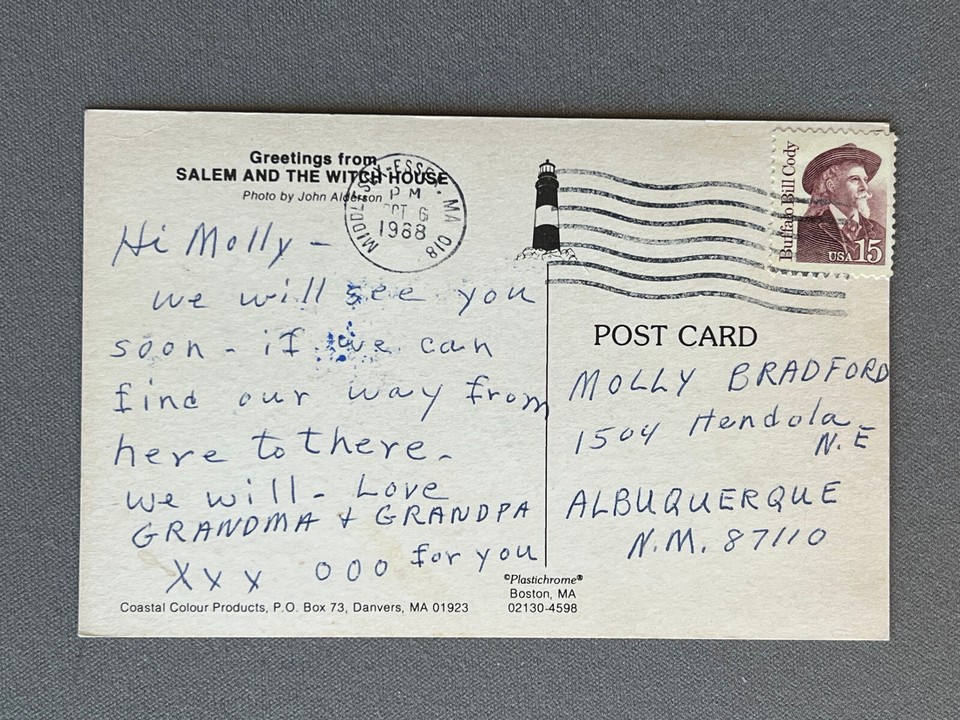 Greetings from
SALEM AND THE WITCH HOUSE
Photo by John Alderson
MIDDLESEX-ESSEX MA 018
PM
OCT 6
1988
Buffalo Bill Cody
USA 15
Hi Molly -
we will see you
soon - if we can
find our way from
here to there -
we will - Love
GRANDMA + GRANDPA
XXX OOO for you
POST CARD
MOLLY BRADFORD
1504 Hendola
N.E
ALBUQUERQUE
N.M. 87110
©Plastichrome®
Boston, MA
02130-4598
Coastal Colour Products, P.O. Box 73, Danvers, MA 01923